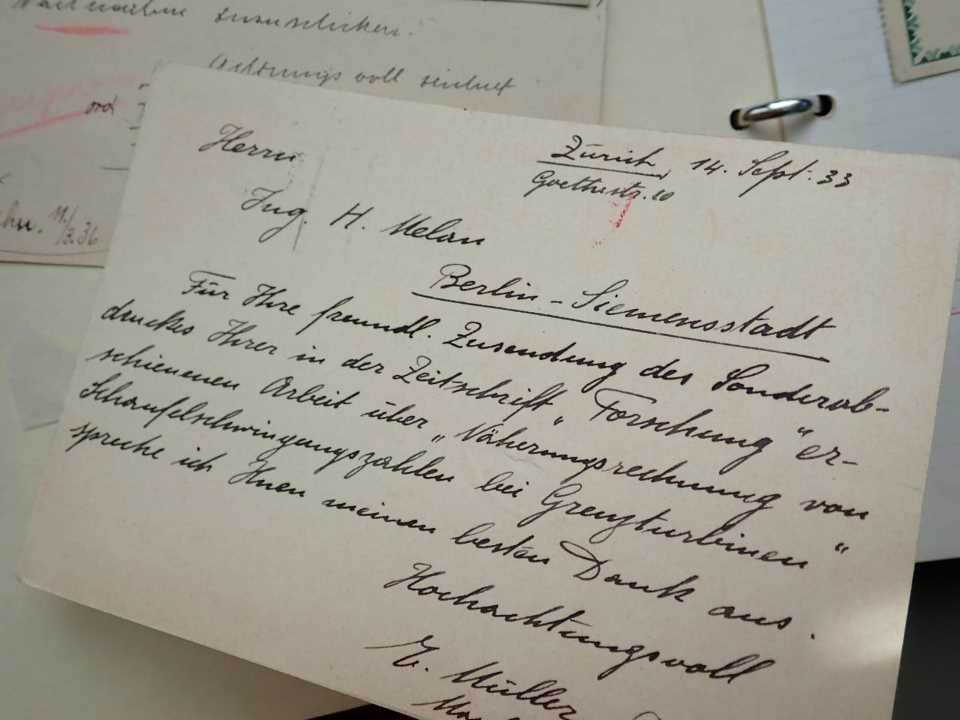 zuzuschicken.
Achtungsvoll zeichnet
11./3.36
Zürich, 14. Sept. 33
Goethestr. 10
Herrn
Ing. H. Melan
Berlin-Siemensstadt
Für Ihre freundl. Zusendung des Sonderab-
druckes Ihrer in der Zeitschrift „Forschung" er-
schienenen Arbeit über „Näherungsrechnung von
Schaufelschwingungszahlen bei Grenzturbinen"
spreche ich Ihnen meinen besten Dank aus.
Hochachtungsvoll
E. Müller